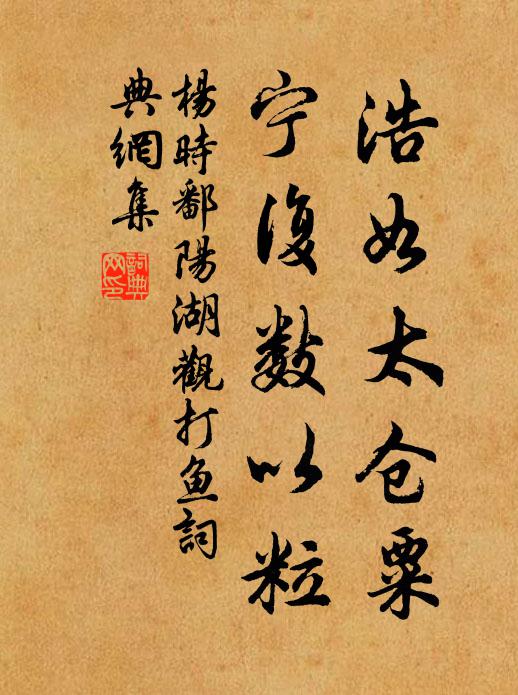 浩如太仓粟
宁復数以粒
楊時鄱陽湖觀打鱼詞
典網集
詞典
网印